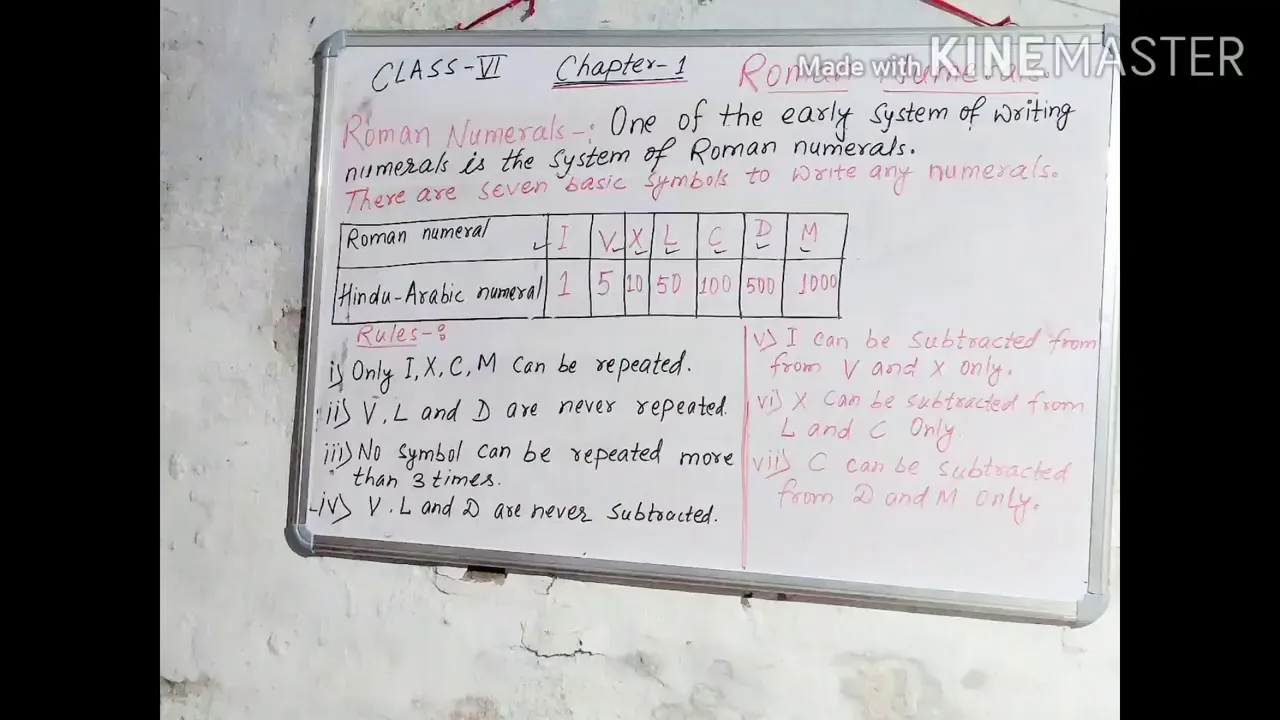 Made with KINEMASTER
CLASS-VI Chapter-1 Roman Numerals.
Roman Numerals-: One of the early System of writing
numerals is the System of Roman numerals.
There are seven basic Symbols to write any numerals.
Roman numeral I V X L C D M
Hindu-Arabic numeral 1 5 10 50 100 500 1000
Rules-:
i) Only I, X, C, M Can be repeated.
ii) V, L and D are never repeated.
iii) No symbol can be repeated more
than 3 times.
iv) V. L and D are never Subtracted.
v) I can be Subtracted from
from V and X only.
vi) X Can be subtracted from
L and C Only.
vii) C can be subtracted
from D and M only.